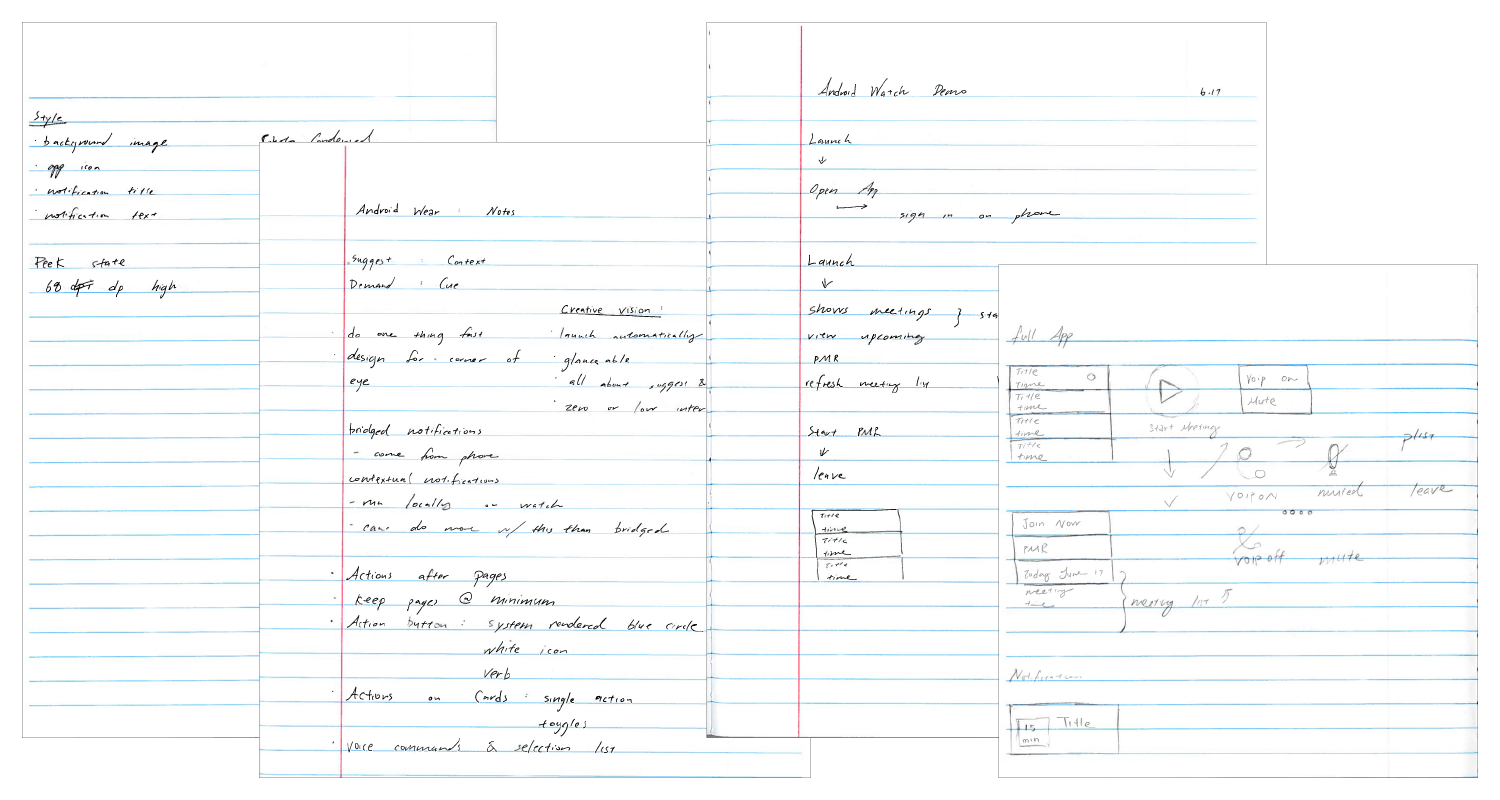 Style
· background image
· app icon
· notification title
· notification text
Peek state
68 dp high
Condensed
Android Wear : Notes
Suggest : Context
Demand : Cue
Creative vision :
· do one thing fast
· design for corner of
eye
· launch automatically
· glanceable
· all about suggest &
· zero or low inter
bridged notifications
- come from phone
contextual notifications
- run locally on watch
- can do more w/ this than bridged
· Actions after pages
· Keep pages @ minimum
· Action button : system rendered blue circle
white icon
verb
· Actions on Cards : single action
toggles
· voice commands & selection list
Android Watch Demo
6.17
Launch
↓
Open App
→
sign in on phone
Launch
↓
shows meetings } sta
view upcoming
PMR
refresh meeting list
Start PMR
↓
leave
Title
time
Title
time
Title
time
full App
Title
time
Title
time
Title
time
Title
time
Start Meeting
Voip on
Mute
plist
VOIP ON
muted
leave
voip off
mute
Join Now
PMR
Today June 17
meeting
time
} meeting list 5
Notification
15
min
Title